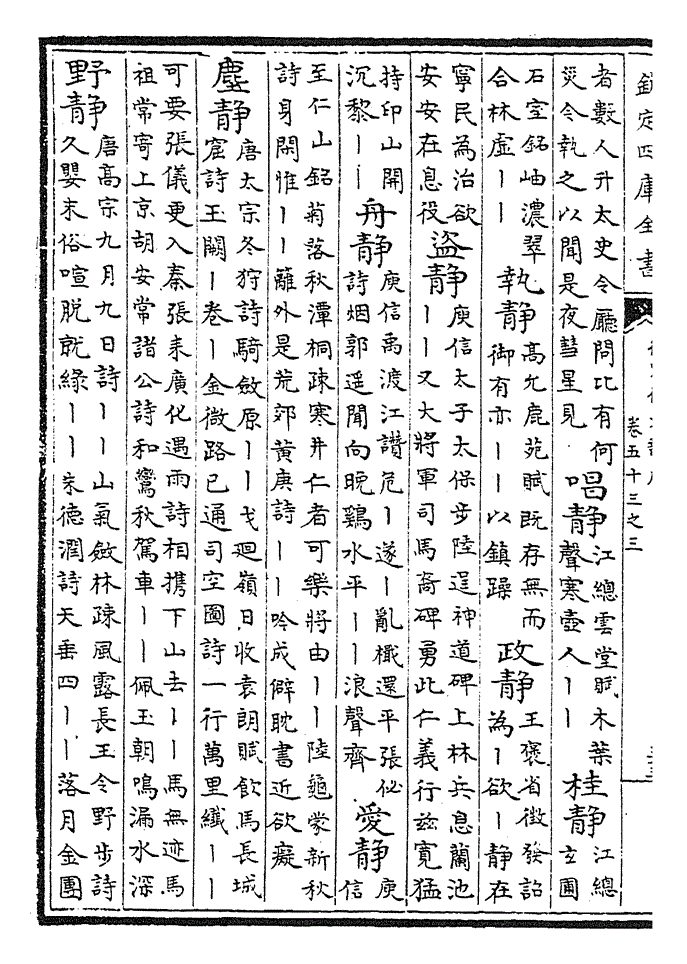 欽定四庫全書
卷五十三之三
者數人升太史令廳問比有何
災令執之以聞是夜彗星見
唱静
江總雲堂賦木葉
聲寒壺人〡〡
桂静
江總
玄圃
石室銘岫濃翠
合林虛〡〡
執静
高允鹿苑賦既存無而
御有亦〡〡以鎮躁
政静
王褒省徵發詔
為〡欲〡静在
寧民為治欲
安安在息役
盜静
庾信太子太保步陸逞神道碑上林兵息蘭池
〡〡又大將軍司馬裔碑勇此仁義行兹寛猛
持印山開
沉黎〡〡
舟静
庾信禹渡江讃危〡遂〡亂檝還平張佖
詩烟郭遥聞向晚鷄水平〡〡浪聲齊
愛静
庾
信
至仁山銘菊落秋潭桐疎寒井仁者可樂將由〡〡陸龜蒙新秋
詩身閑惟〡〡籬外是荒郊黄庚詩〡〡吟成僻耽書近欲癡
塵静
唐太宗冬狩詩騎斂原〡〡戈廻嶺日收袁朗賦飲馬長城
窟詩玉關〡卷〡金微路已通司空圖詩一行萬里纖〡〡
可要張儀更入秦張耒廣化遇雨詩相携下山去〡〡馬無迹馬
祖常寄上京胡安常諸公詩和鸞秋駕車〡〡佩玉朝鳴漏水深
野静
唐高宗九月九日詩〡〡山氣斂林疎風露長王令野步詩
久嬰末俗喧脱就緑〡〡朱德潤詩天垂四〡〡落月金團